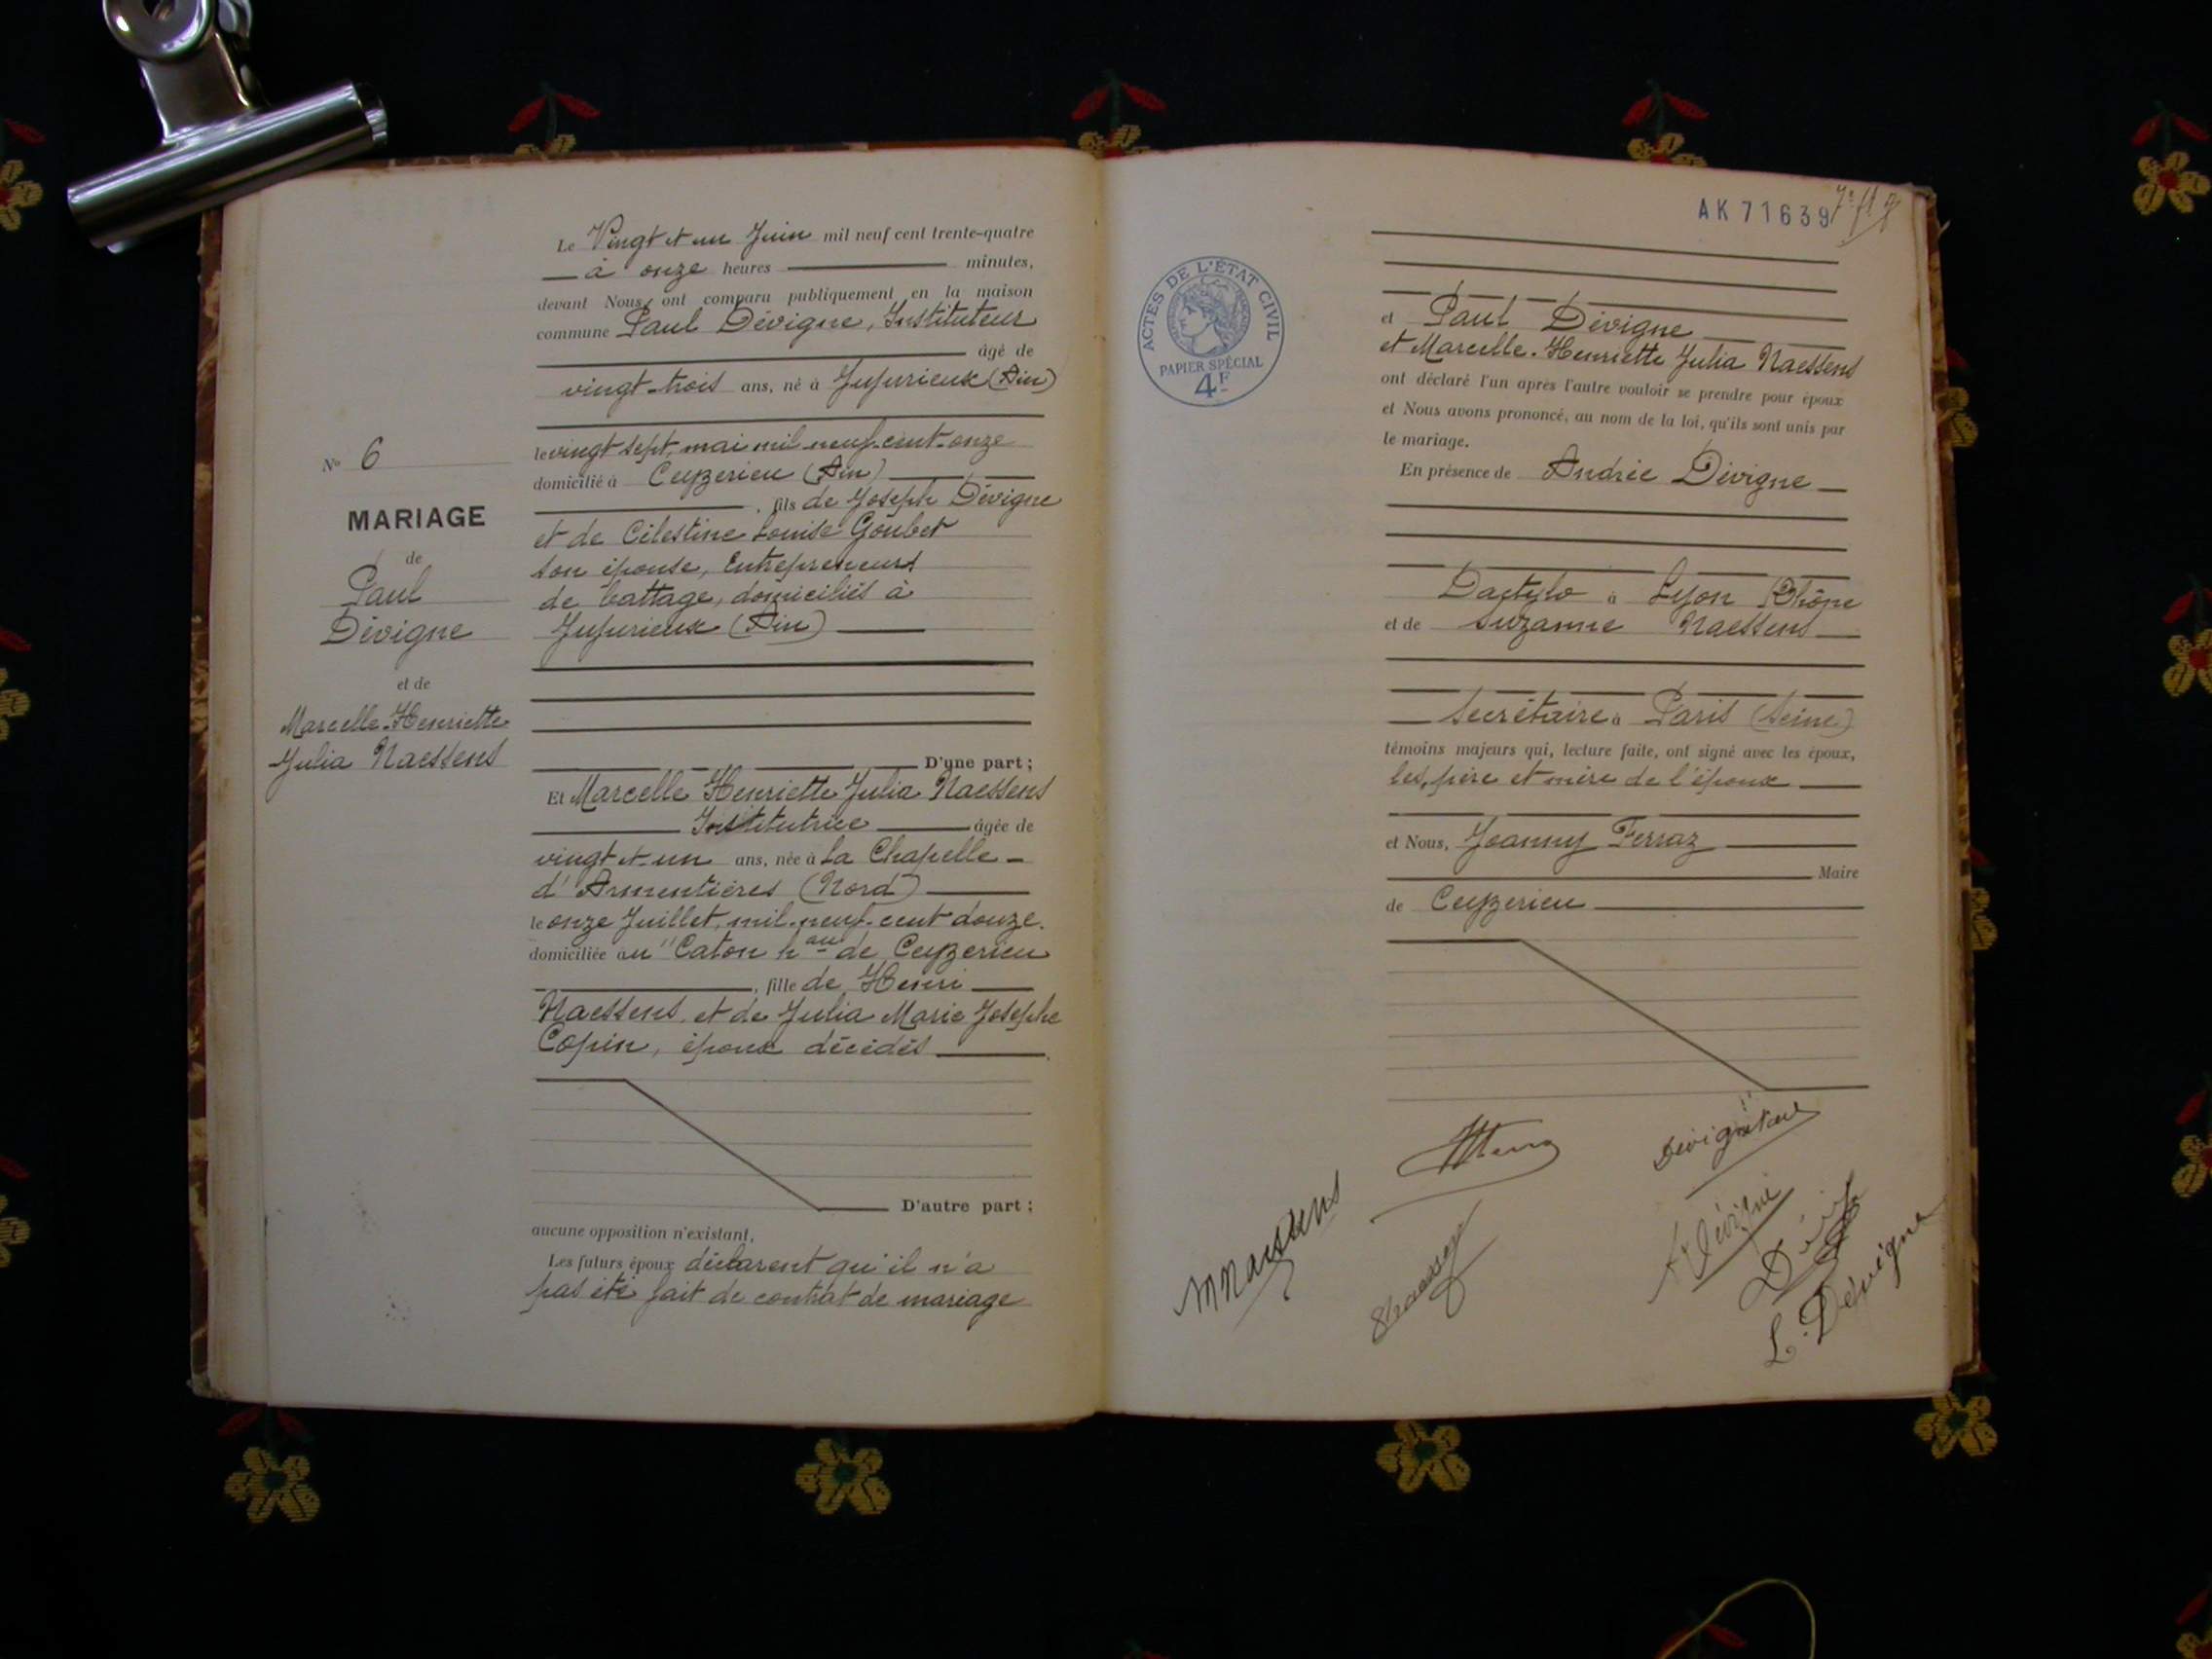 Le Vingt et un Juin mil neuf cent trente-quatre
à onze heures minutes,
devant Nous, ont comparu publiquement en la maison
commune Paul Dévigne, Instituteur
âgé de
vingt-trois ans, né à Jujurieux (Ain)
le vingt sept, mai mil neuf cent onze
domicilié à Ceyzerieu (Ain)
, fils de Joseph Dévigne
et de Célestine Louise Goubet
son épouse, Entrepreneurs
de battage, domiciliés à
Jujurieux (Ain)
D'une part;
Et Marcelle Henriette Julia Naessens
Institutrice âgée de
vingt et un ans, née à La Chapelle-
d'Armentières (Nord)
le onze Juillet, mil neuf cent douze.
domiciliée au "Caton hau de Ceyzerieu
, fille de Henri
Naessens et de Julia Marie Josephe
Copin, époux décédés
D'autre part;
aucune opposition n'existant,
Les futurs époux déclarent qu'il n'a
pas été fait de contrat de mariage
No 6
MARIAGE
de
Paul
Dévigne
et de
Marcelle-Henriette
Julia Naessens
AK 71639
ACTES DE L'ÉTAT CIVIL
PAPIER SPÉCIAL
4F
et Paul Dévigne
et Marcelle-Henriette Julia Naessens
ont déclaré l'un après l'autre vouloir se prendre pour époux
et Nous avons prononcé, au nom de la loi, qu'ils sont unis par
le mariage.
En présence de Andrée Dévigne
Dactylo à Lyon Rhône
et de Suzanne Naessens
Secrétaire à Paris (Seine)
témoins majeurs qui, lecture faite, ont signé avec les époux,
les père et mère de l'époux
et Nous, Joanny Ferraz
Maire
de Ceyzerieu
MNaessens
Dévigne
ADévigne
L. Dévigne